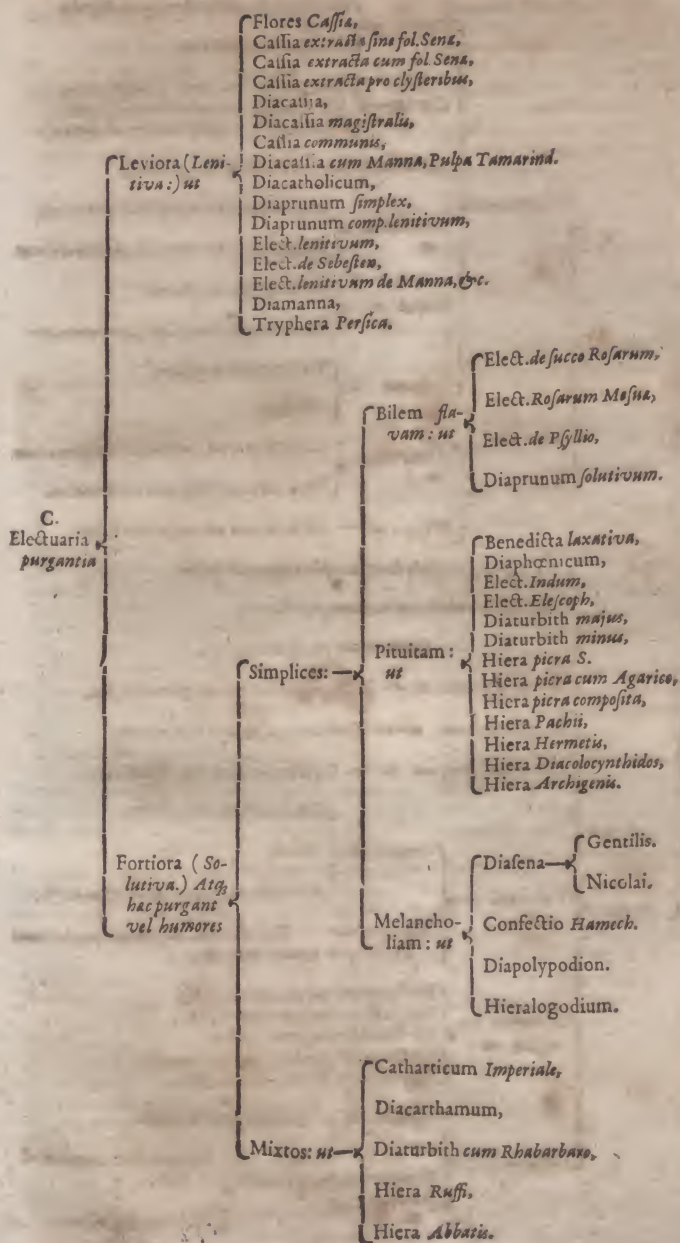 Flores Caſſiæ,
Caſſia extracta ſine fol. Senæ,
Caſſia extracta cum fol. Senæ,
Caſſia extracta pro clyſteribus,
Diacaſſia,
Diacaſſia magiſtralis,
Caſſia communis,
Leviora (Leni-
tiva:) ut
Diacaſſia cum Manna, Pulpa Tamarind.
Diacatholicum,
Diaprunum ſimplex,
Diaprunum comp. lenitivum,
Elect. lenitivum,
Elect. de Sebeſten,
Elect. lenitivum de Manna, &c.
Diamanna,
Tryphera Perſica.
C.
Electuaria
purgantia
Fortiora (So-
lutiva.) Atq;
hæc purgant
vel humores
Simplices:
Bilem fla-
vam: ut
Elect. de ſucco Roſarum,
Elect. Roſarum Meſuæ,
Elect. de Pſyllio,
Diaprunum ſolutivum.
Pituitam:
ut
Benedicta laxativa,
Diaphœnicum,
Elect. Indum,
Elect. Eleſcoph,
Diaturbith majus,
Diaturbith minus,
Hiera picra S.
Hiera picra cum Agarico,
Hiera picra compoſita,
Hiera Pachii,
Hiera Hermetis,
Hiera Diacolocynthidos,
Hiera Archigenis.
Melancho-
liam: ut
Diaſena
Gentilis.
Nicolai.
Confectio Hamech.
Diapolypodion.
Hieralogodium.
Mixtos: ut
Catharticum Imperiale,
Diacarthamum,
Diaturbith cum Rhabarbaro,
Hiera Ruffi,
Hiera Abbatis.